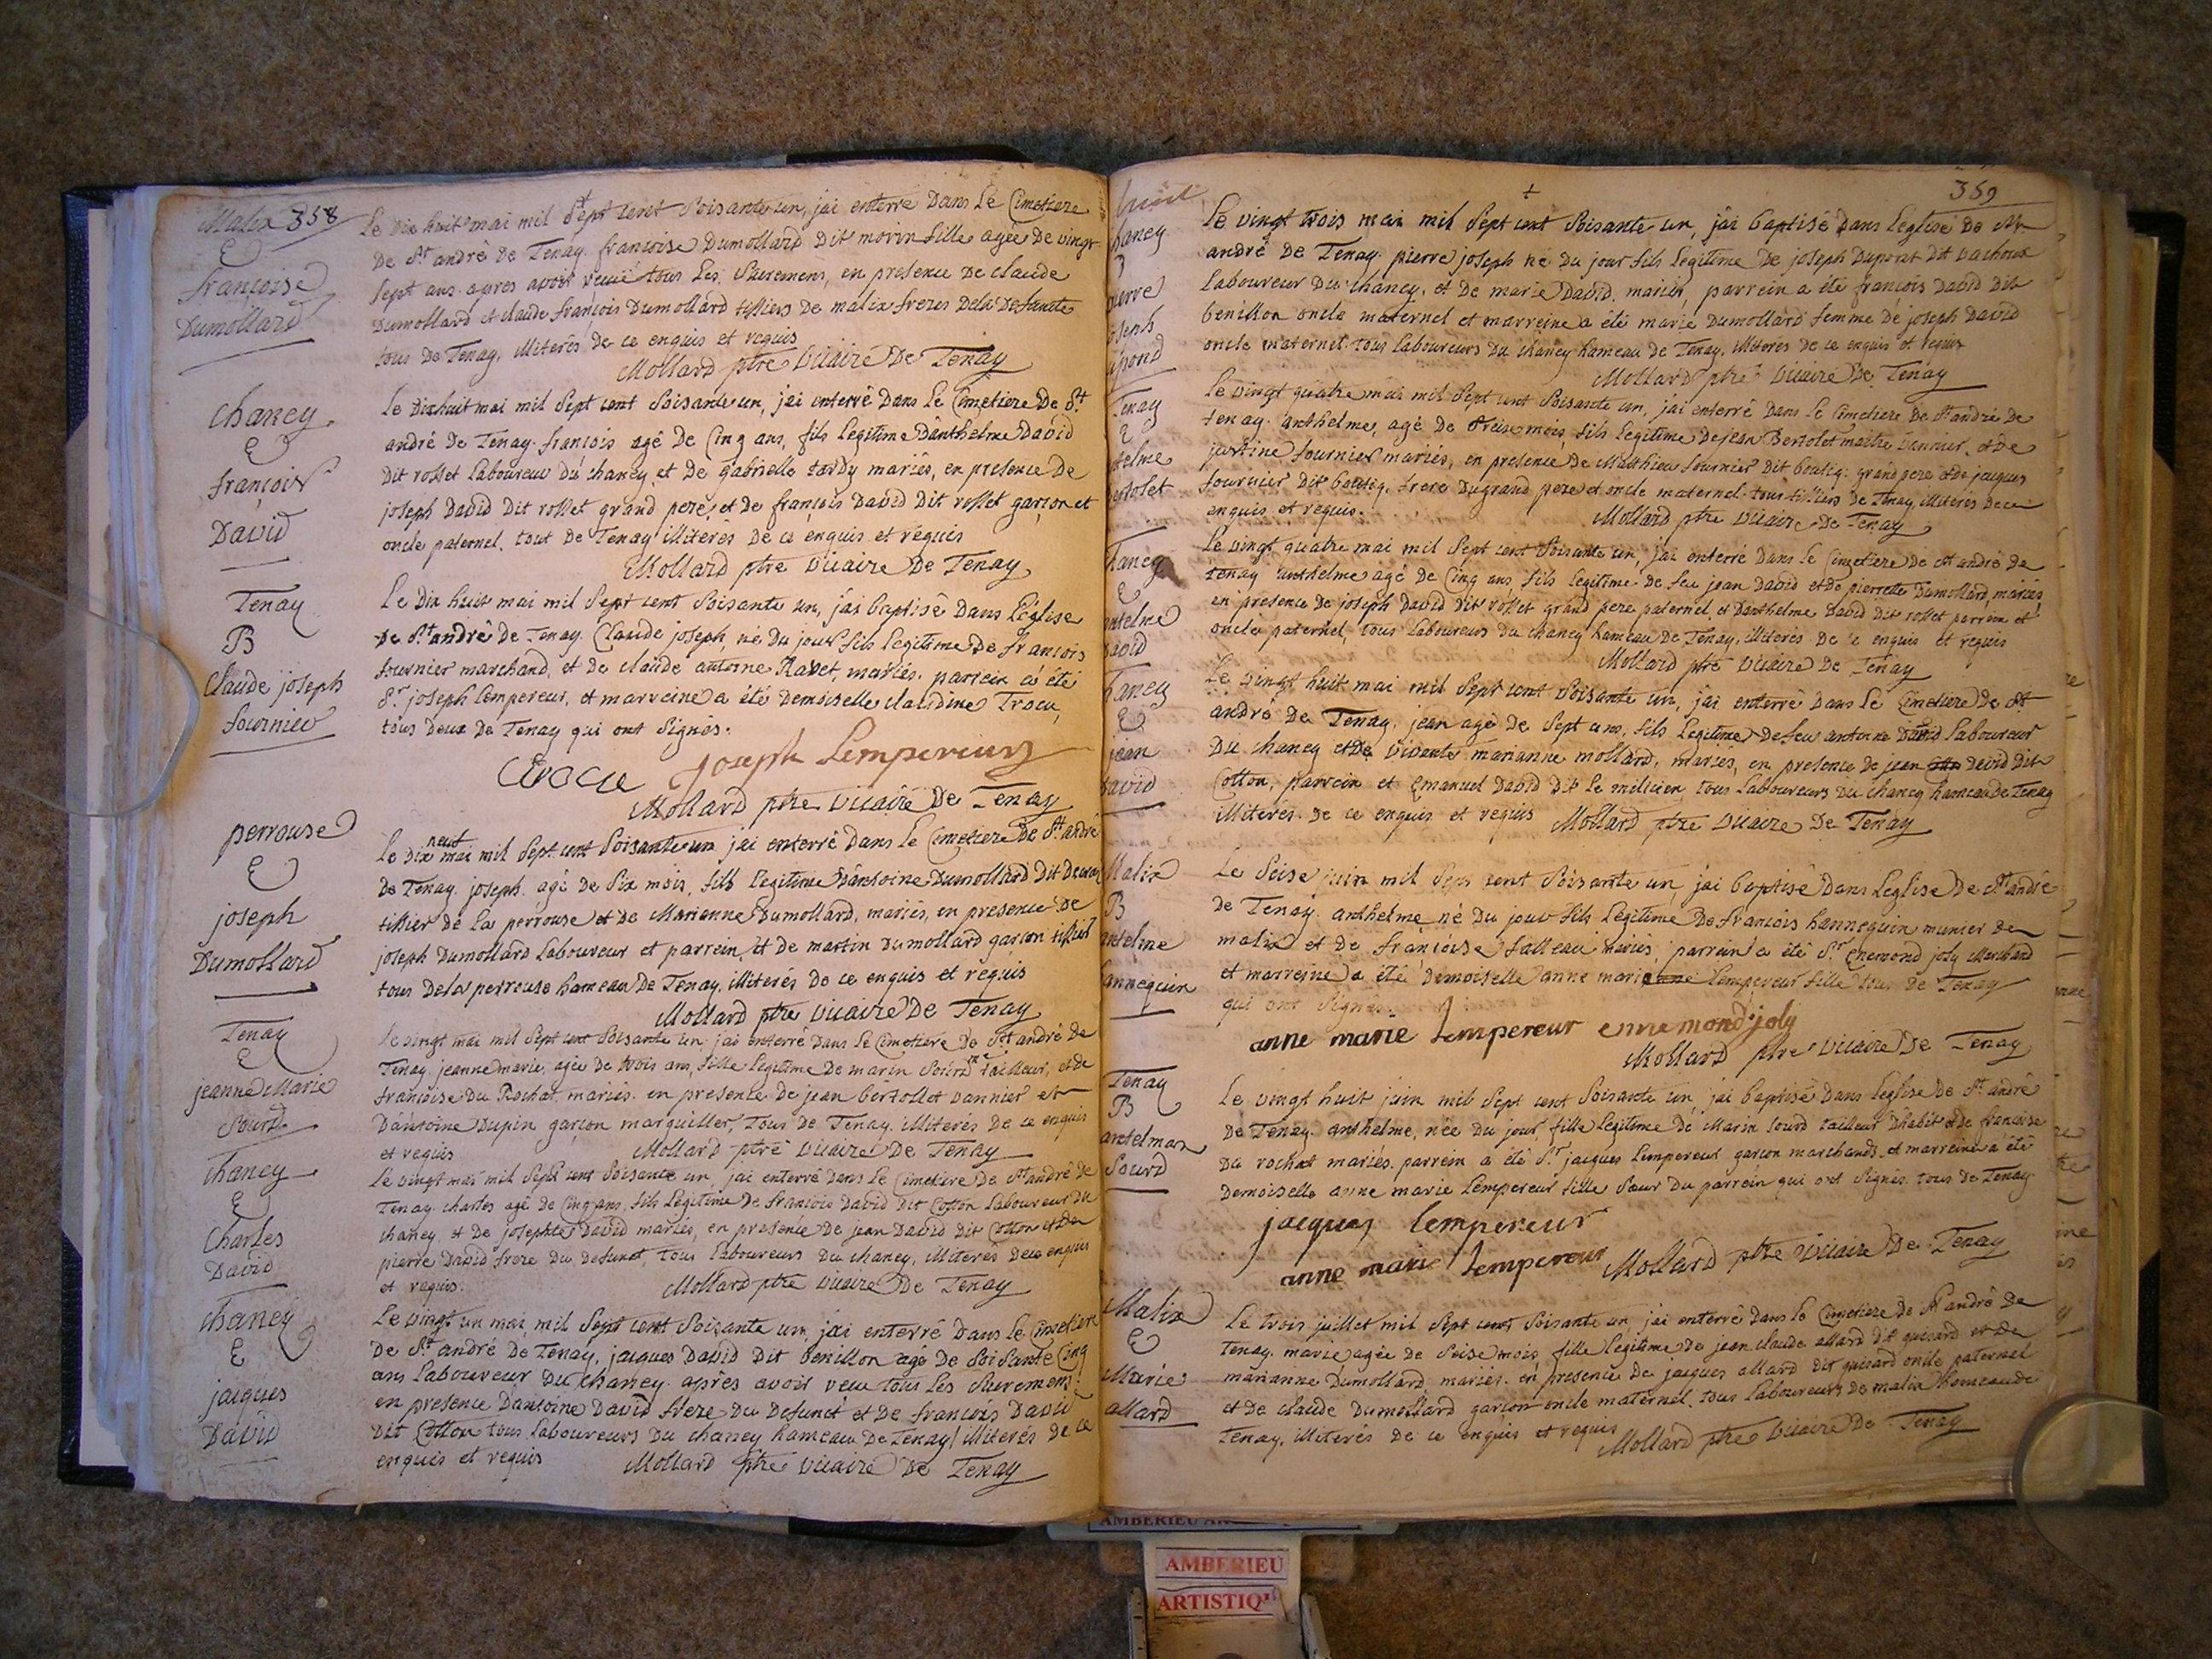 Malix 358
E
françoise
Dumollard
Le dix huit mai mil Sept cent Soisante un, jai enterré Dans Le Cimetiere
De St andré De Tenay. françoise Dumollard Dit morin fille agée De vingt
Sept ans apres avoir reçue tous Les Sacremens, en presence De claude
Dumollard et claude françois Dumollard tilliers De malix freres Dela Defuncte
tous De Tenay, illiterés De ce enquis et requis
Mollard ptre vicaire De Tenay
chaney
E
françois
David
Le Dix huit mai mil Sept cent Soisante un, jai enterré Dans Le Cimetiere De St
andré de Tenay. françois agé De Cinq ans, fils Legitime Danthelme David
Dit rosset Laboureur du chaney, et De gabrielle tardy mariés, en presence De
joseph David Dit rosset grand pere, et De françois David Dit rosset garçon et
oncle paternel, tout De Tenay illiterés De ce enquis et requis
Mollard ptre vicaire De Tenay
Tenay
B
Claude joseph
fournier
Le Dix huit mai mil Sept cent Soisante un, jai baptisé Dans L'église
De St andré De Tenay. Claude joseph, né Du jour fils Legitime De françois
fournier marchand, et De claude antoine Ravet, mariés. parrein a été
Sr joseph Lempereur, et marreine a été Demoiselle claudine Trocu,
tous deux De Tenay qui ont Signés.
Joseph Lempereur
Mollard ptre vicaire De Tenay
perrouse
E
joseph
Dumollard
Le dix neuf mai mil Sept cent Soisante un jai enterré Dans Le Cimetiere De St andré
De Tenay. joseph. agé De Six mois, fils Legitime Dantoine Dumollard Dit
tillier De La perrouse et De Marianne Dumollard, mariés, en presence De
joseph Dumollard Laboureur et parrein, et De martin Dumollard garçon tillier
tous Dela perrouse hameau De Tenay, illiterés De ce enquis et requis
Mollard ptre vicaire De Tenay
Tenay
E
jeanne Marie
Sourd
Le vingt mai mil Sept cent Soisante un jai enterré Dans Le Cimetiere De St andré De
Tenay jeanne marie, agée De trois ans, fille Legitime De marin Sourd tailleur, et De
françoise Du Rochat, mariés. en presence De jean bertollet vannier et
Dantoine Dupin garçon marguiller, Tous De Tenay. illiterés De ce enquis
et requis
Mollard ptre vicaire De Tenay
chaney
E
Charles
David
Le vingt mai mil Sept cent Soisante un, jai enterré Dans Le Cimetiere De St andré De
Tenay. charles agé De Cinq ans, fils Legitime De francois David Dit Cotton Laboureur Du
chaney. et De josephte David mariés, en presence De jean David Dit Cotton et De
pierre David frere Du Defunct, tous Laboureurs Du chaney, illiterés De ce enquis
et requis.
Mollard ptre vicaire De Tenay
chaney
E
jacques
David
Le vingt un mai mil Sept cent Soisante un, jai enterré Dans Le Cimetiere
De St andré De Tenay, jacques David Dit benillon agé De Soisante Cinq
ans Laboureur Du chaney. après avoir reçu tous Les Sacremens
en presence Dantoine David frere Du Defunct et De francois David
Dit Cotton tous Laboureurs Du chaney hameau De Tenay, illiterés De ce
enquis et requis
Mollard ptre vicaire De Tenay
359
haney
pierre
oseph
upond
Le vingt trois mai mil Sept cent Soisante un, jai baptisé Dans Leglise De St
andré De Tenay. pierre joseph né Du jour fils Legitime De joseph Dupont Dit vachoux
Laboureur Du chaney, et De marie David. mariés, parrein a été françois David Dit
benillon oncle maternel et marreine a été marie Dumollard femme De joseph David
oncle maternel tous Laboureurs Du chaney hameau De Tenay, illiterés De ce enquis et requis
Mollard ptre vicaire De Tenay
Tenay
E
telme
ertolet
Le vingt quatre mai mil Sept cent Soisante un, jai enterré Dans Le Cimetiere De St andré De
tenay anthelme, agé De Treise mois, fils Legitime De jean Bertolet maitre vannier, et De
justine fournier mariés, en presence De Matthieu fournier Dit boulig. grand pere et De jacques
fournier Dit boulig, frere Du grand pere et oncle maternel. tous tilliers De Tenay illiterés De ce
enquis et requis.
Mollard ptre vicaire De Tenay
haney
E
ntelme
david
Le vingt quatre mai mil Sept cent Soisante un, jai enterré Dans Le Cimetiere De St andré De
Tenay anthelme agé De Cinq ans, fils Legitime De feu jean David et De pierrette Dumollard, mariés
en presence De joseph David Dit rosset grand pere paternel, et Danthelme David Dit rosset parrein et
oncle paternel tous Laboureurs Du chaney hameau De Tenay, illiterés De ce enquis et requis
Mollard ptre vicaire De Tenay
haney
E
jean
david
Le vingt huit mai mil Sept cent Soisante un, jai enterré Dans Le Cimetiere De St
andré De Tenay, jean agé De Sept ans, fils Legitime De feu antoine David Laboureur
Du chaney et De vivante marianne mollard, mariés, en presence De jean David Dit
Cotton, parrein et Emanuel David Dit Le milicien tous Laboureurs Du chaney hameau De Tenay
illiterés De ce enquis et requis
Mollard ptre vicaire De Tenay
Malix
B
antelme
hannequin
Le Seise juin mil Sept cent Soisante un, jai baptisé Dans Leglise De St andré
De Tenay. anthelme né Du jour fils Legitime De francois hannequin munier De
malix et De françoise falleau mariés, parrein a été Sr Enemond joly Marchand
et marreine a été Demoiselle anne marie Lempereur fille tous De Tenay
qui ont Signés.
anne marie Lempereur ennemond joly
Mollard ptre vicaire De Tenay
Tenay
B
antelman
Sourd
Le vingt huit juin mil Sept cent Soisante un, jai baptisé Dans Leglise De St andré
De Tenay anthelme, née Du jour, fille Legitime De Marin Sourd tailleur Dhabit et De francoise
Du rochat mariés. parrein a été Sr jacques Lempereur garçon marchand, et marreine a été
Demoiselle anne marie Lempereur fille Sœur Du parrein qui ont Signés. tous De Tenay
jacques lempereur
anne marie Lempereur
Mollard ptre vicaire De Tenay
Malix
E
Marie
allard
Le trois juillet mil Sept cent Soisante un jai enterré Dans Le Cimetiere De St andré De
Tenay. marie agée De Seise mois, fille Legitime De jean claude allard Dit guerard et De
marianne Dumollard, mariés. en presence De jacques allard Dit guerard oncle paternel
et De claude Dumollard garçon oncle maternel, tous Laboureurs De malix hameau De
Tenay, illiterés De ce enquis et requis
Mollard ptre vicaire De Tenay
AMBERIEU
AMBERIEU
ARTISTIQ